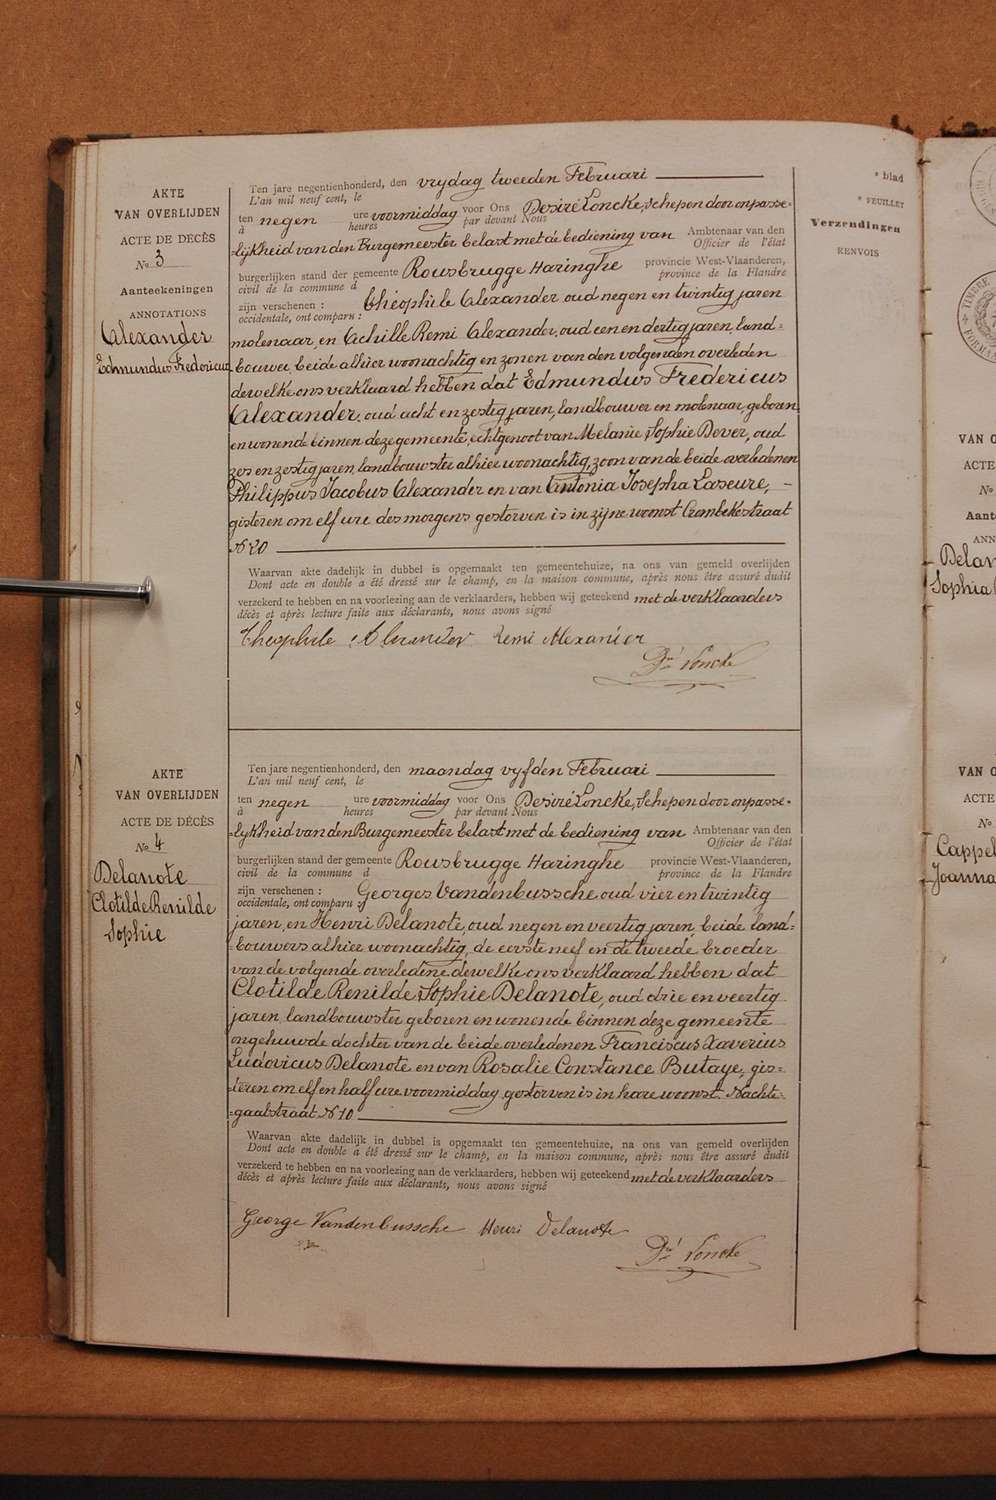 AKTE
VAN OVERLIJDEN
ACTE DE DÉCÈS
No 3
Aanteekeningen
ANNOTATIONS
Alexander
Edmundus Fredericus
Ten jare negentienhonderd, den vrijdag tweeden Februari
L'an mil neuf cent, le
ten negen ure voormiddag voor Ons Desiré Loncke, Schepen door onpasse-
à heures par devant Nous
lijkheid van den Burgemeester belast met de bediening van Ambtenaar van den
Officier de l'état
burgerlijken stand der gemeente Rousbrugge Haringhe provincie West-Vlaanderen,
civil de la commune d province de la Flandre
zijn verschenen : Theophile Alexander oud negen en twintig jaren
occidentale, ont comparu :
molenaar, en Achille Remi Alexander, oud een en dertig jaren, land=
bouwer, beide alhier woonachtig en zonen van den volgenden overleden
dewelke ons verklaard hebben dat Edmundus Fredericus
Alexander, oud acht en zestig jaren, landbouwer en molenaar, geboren
en wonend binnen deze gemeente, echtgenoot van Melanie Sophie Dever, oud
zes en zestig jaren, landbouwster alhier woonachtig, zoon van de beide overledenen
Philippus Jacobus Alexander en van Antonia Josepha Laseure,
gisteren om elf ure des morgens gestorven is in zijne woonst Crombekestraat
No 20
Waarvan akte dadelijk in dubbel is opgemaakt ten gemeentehuize, na ons van gemeld overlijden
Dont acte en double a été dressé sur le champ, en la maison commune, après nous être assuré dudit
verzekerd te hebben en na voorlezing aan de verklaarders, hebben wij geteekend met de verklaarders
décès et après lecture faite aux déclarants, nous avons signé
Theophile Alexander Remi Alexander
Dré Loncke
AKTE
VAN OVERLIJDEN
ACTE DE DÉCÈS
No 4
Delanote
Clotilde Renilde
Sophie
Ten jare negentienhonderd, den maandag vyfden Februari
L'an mil neuf cent, le
ten negen ure voormiddag voor Ons Desiré Loncke, Schepen door onpasse-
à heures par devant Nous
=lijkheid van den Burgemeester belast met de bediening van Ambtenaar van den
Officier de l'état
burgerlijken stand der gemeente Rousbrugge Haringhe provincie West-Vlaanderen,
civil de la commune d province de la Flandre
zijn verschenen : Georges Vandenbussche oud vier en twintig
occidentale, ont comparu :
jaren, en Henri Delanote, oud negen en veertig jaren, beide land=
bouwers alhier woonachtig, de eerste neef en de tweede broeder
van de volgende overledene dewelke ons verklaard hebben dat
Clotilde Renilde Sophie Delanote, oud drie en veertig
jaren landbouwster geboren en wonende binnen deze gemeente
ongehuwde dochter van de beide overledenen Franciscus Xaverius
Ludovicus Delanote en van Rosalie Constance Butaye, gis=
=teren om elf en half ure voormiddag gestorven is in hare woonst Nachte-
=gaalstraat No 10
Waarvan akte dadelijk in dubbel is opgemaakt ten gemeentehuize, na ons van gemeld overlijden
Dont acte en double a été dressé sur le champ, en la maison commune, après nous être assuré dudit
verzekerd te hebben en na voorlezing aan de verklaarders, hebben wij geteekend met de verklaarders
décès et après lecture faite aux déclarants, nous avons signé
George Vandenbussche Henri Delanote
Dré Loncke
* blad
* FEUILLET
Verzendingen
RENVOIS
VAN O
ACTE
No
Aant
ANN
Delan
Sophia
VAN O
ACTE
No
Cappel
Joanna
TIMBRE